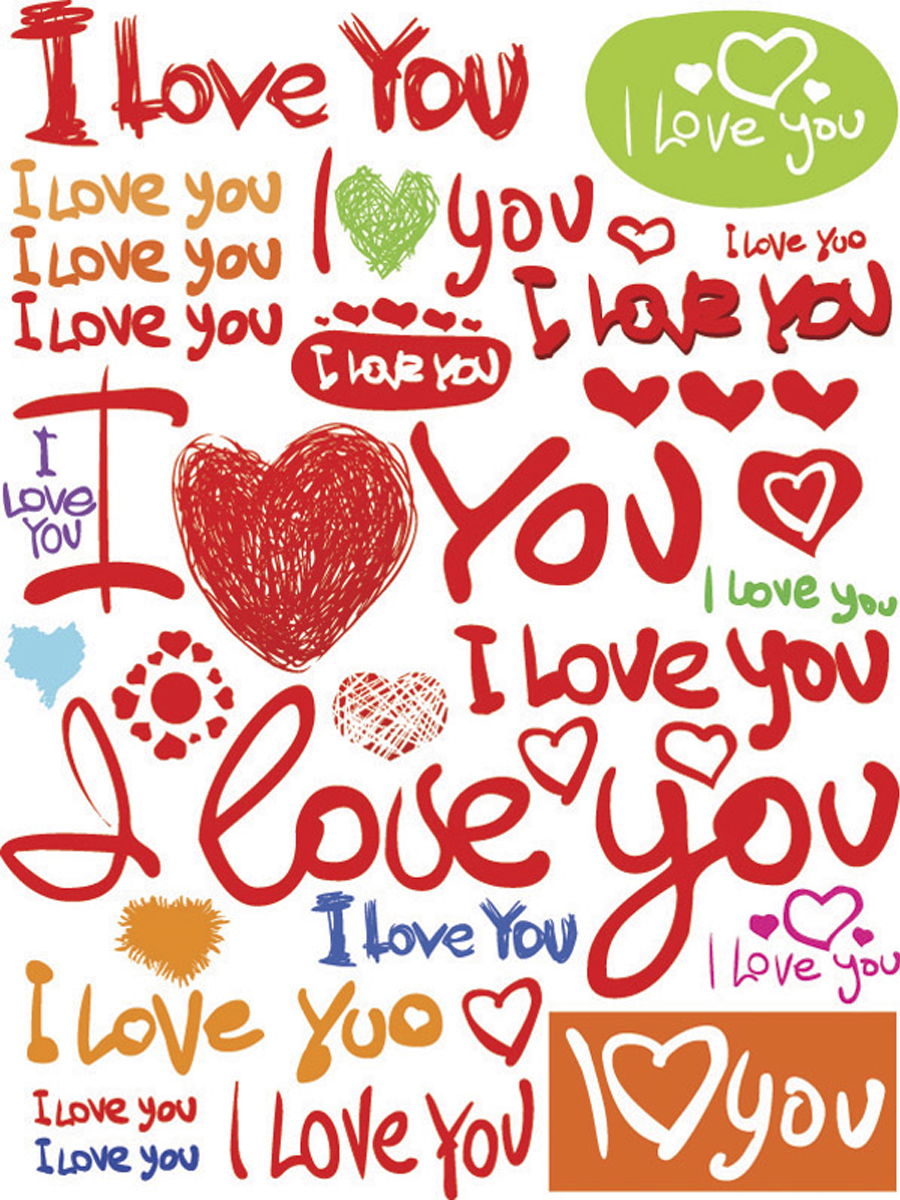 I Love You
I Love you
I Love you
I you
I Love you
I Love Yuo
I Love you
I Love You
I Love You
I You
I
Love
You
I Love you
I Love you
I love you
I Love You
I Love you
I Love Yuo
I you
I Love you
I Love you
I Love You